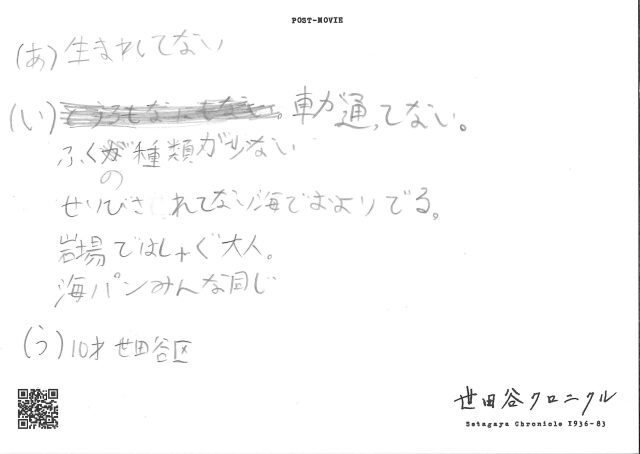 POST-MOVIE
(あ)生まれてない
(い) 車が通ってない。
ふくの種類が少ない
せいびされてない海でおよいでる。
岩場ではしゃぐ大人。
海パンみんな同じ
(う)10才 世田谷区
世田谷クロニクル
Setagaya Chronicle 1936-83